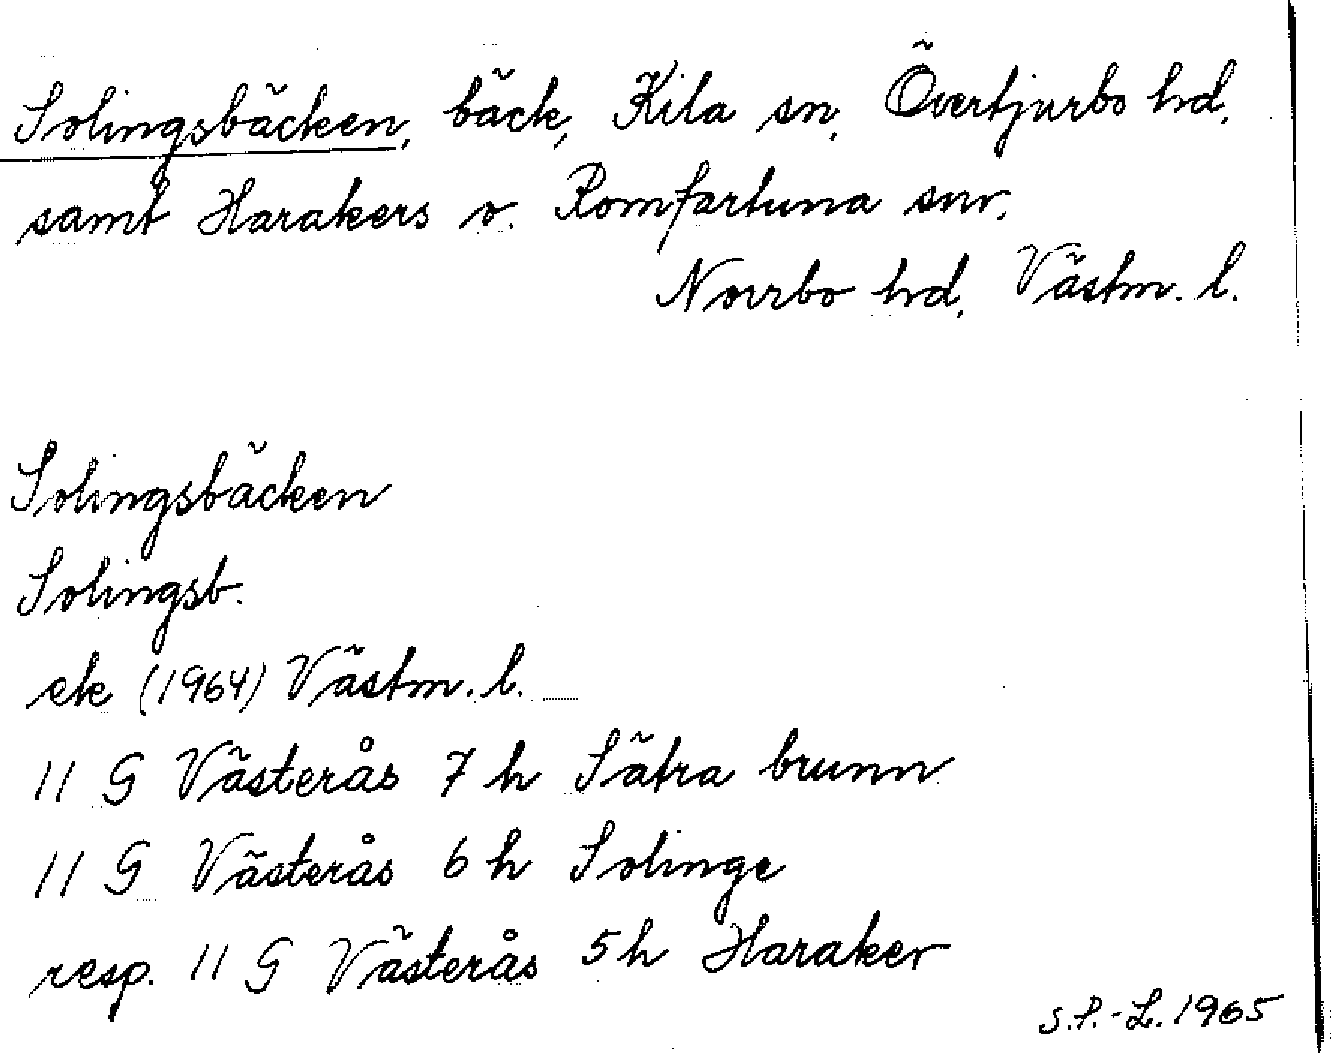 Solingsbäcken, bäck, Kila sn, Övertjurbo hd,
samt Harakers o. Romfartuna snr,
Norrbo hd, Västm. l.
Solingsbäcken
Solingsb.
ek (1964) Västm. l.
11 G Västerås 7 h Sätra brunn
11 G Västerås 6 h Solinge
resp. 11 G Västerås 5 h Haraker
S.P.-L. 1965